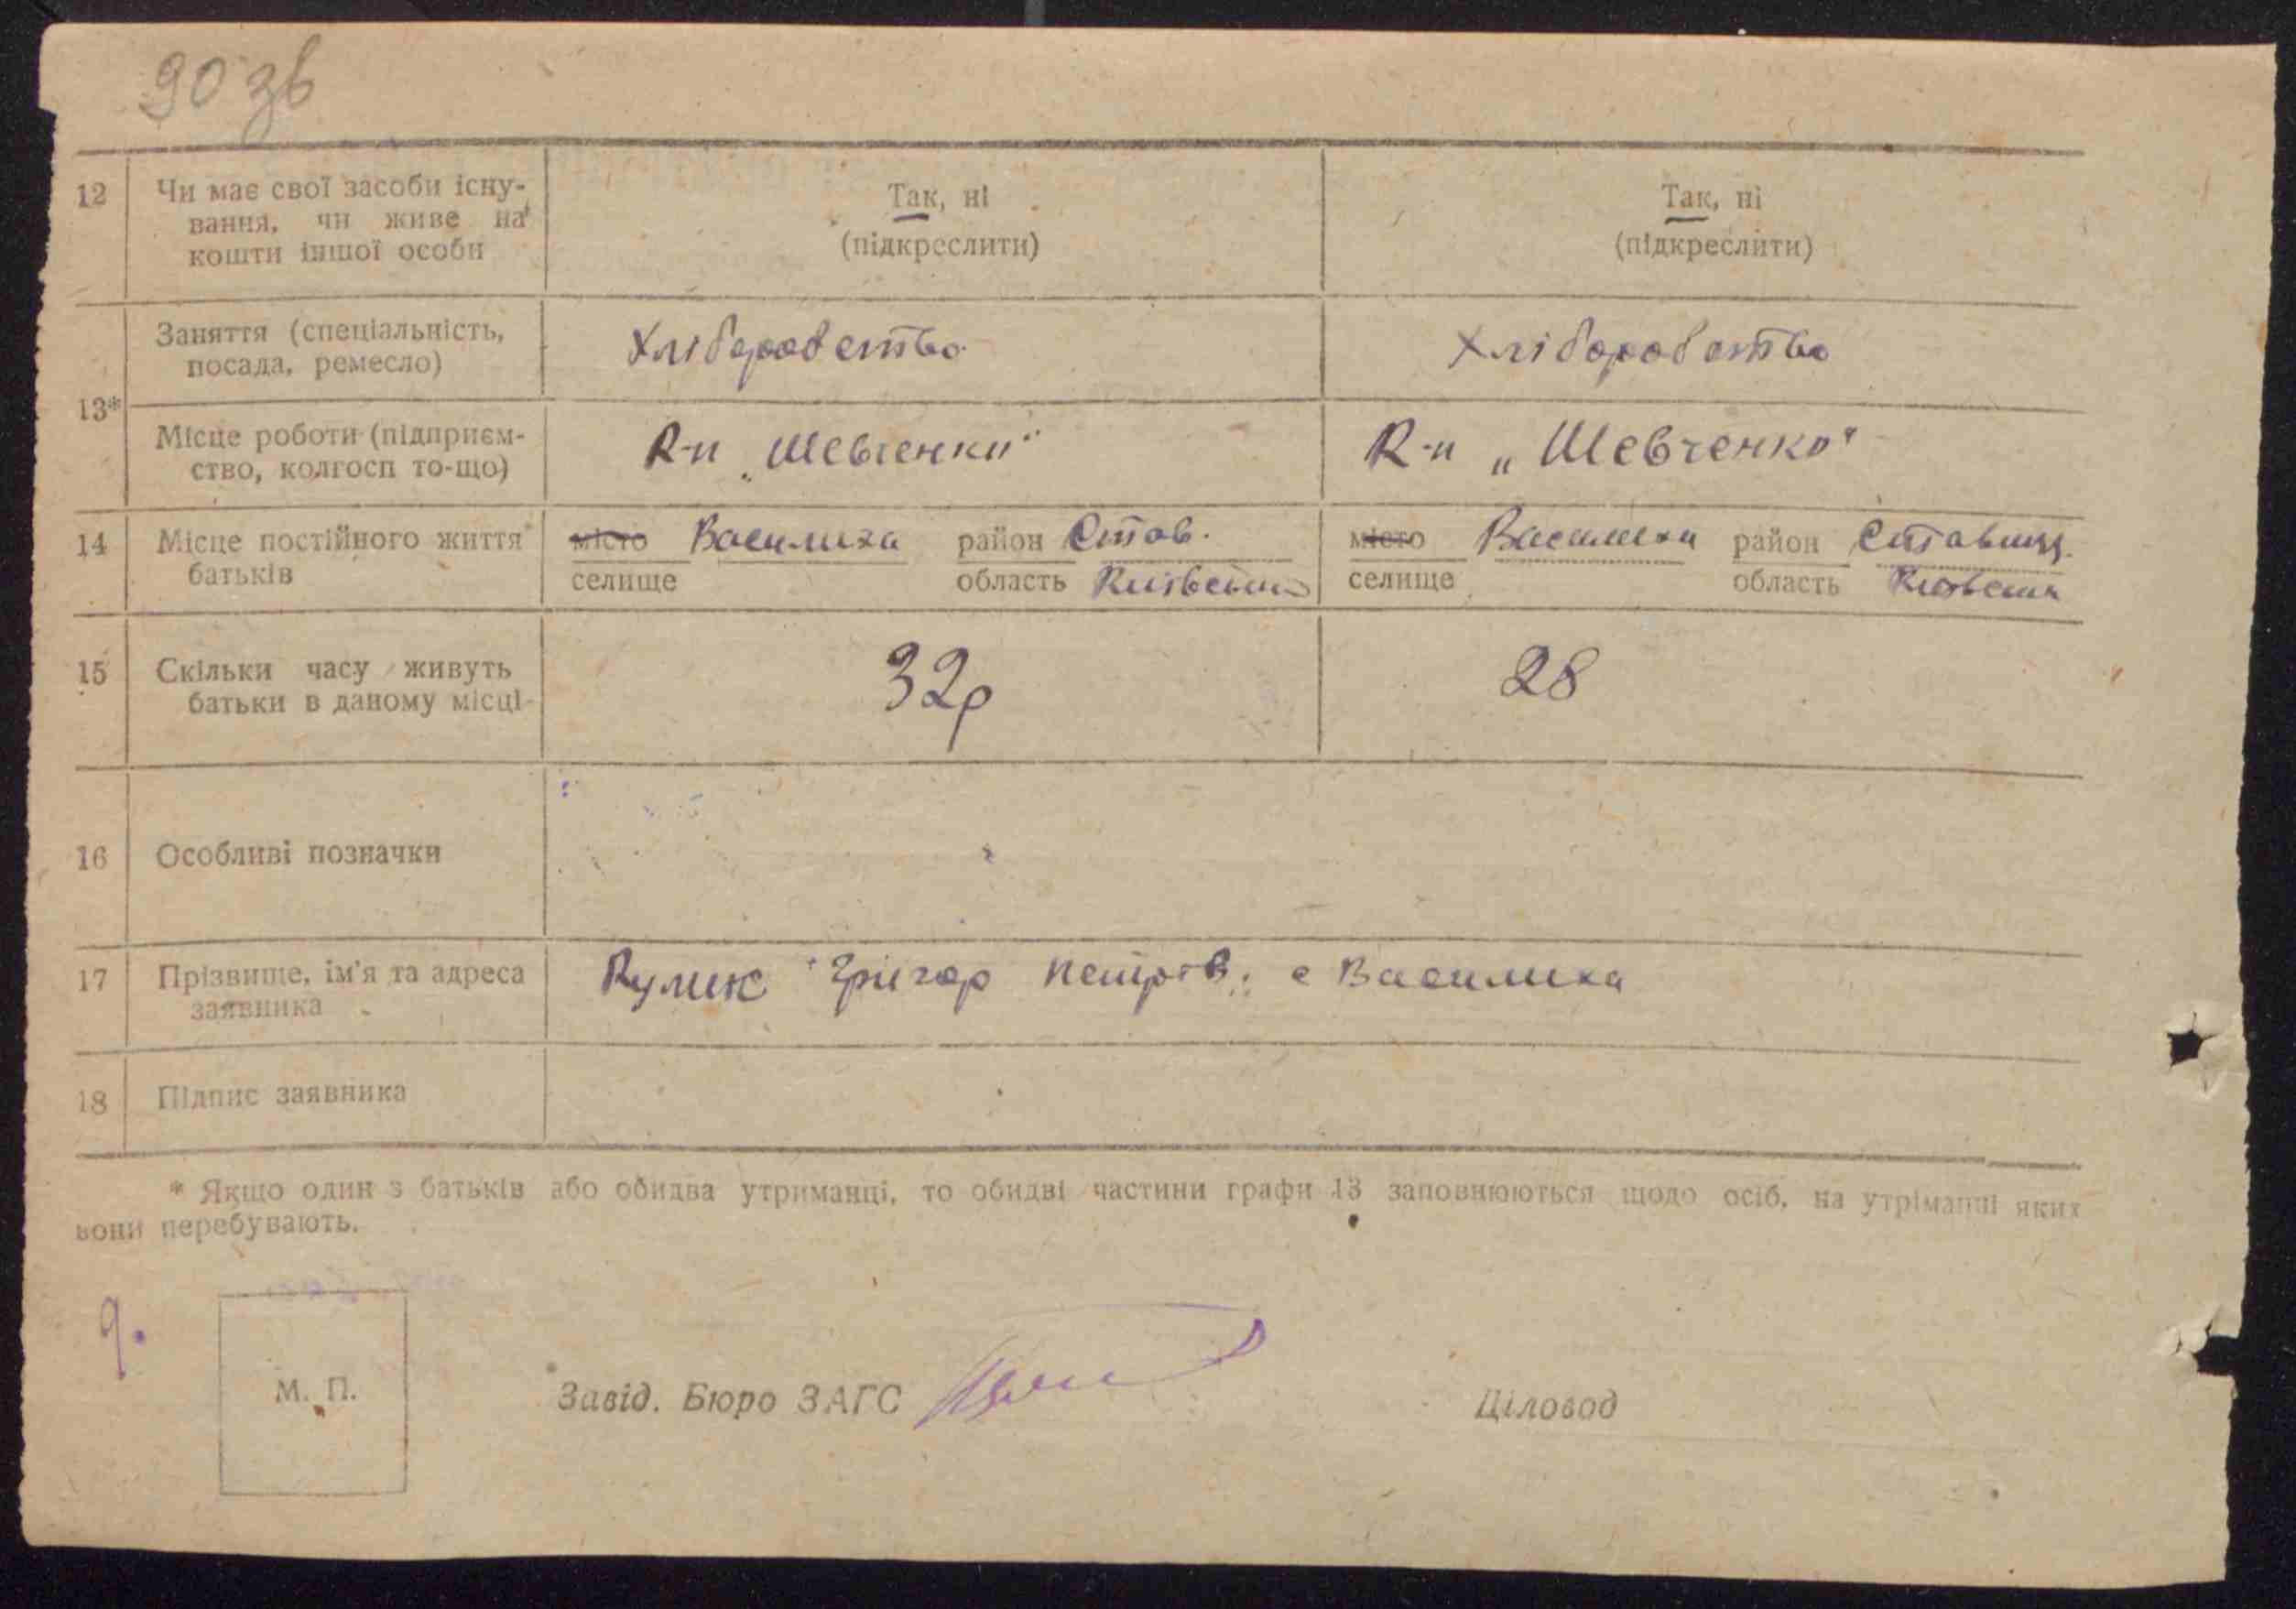 90 зв
12 Чи має свої засоби існу-
вання, чи живе на
кошти іншої особи
Так, ні
(підкреслити)
Так, ні
(підкреслити)
13*
Заняття (спеціальність,
посада, ремесло)
Хліборобство
Хліборобство
Місце роботи (підприєм-
ство, колгосп то-що)
К-п „Шевченко“
К-п „Шевченко“
14 Місце постійного життя
батьків
місто Василиха район Став.
селище область Київська
місто Василиха район Ставищ.
селище область Київська
15 Скільки часу живуть
батьки в даному місці
32р
28
16 Особливі позначки
17 Прізвище, ім'я та адреса
заявника
Кулик Григор Петров. с Василиха
18 Підпис заявника
* Якщо один з батьків або обидва утриманці, то обидві частини графи 13 заповнюються щодо осіб, на утріманні яких
вони перебувають.
М. П.
Завід. Бюро ЗАГС
Діловод